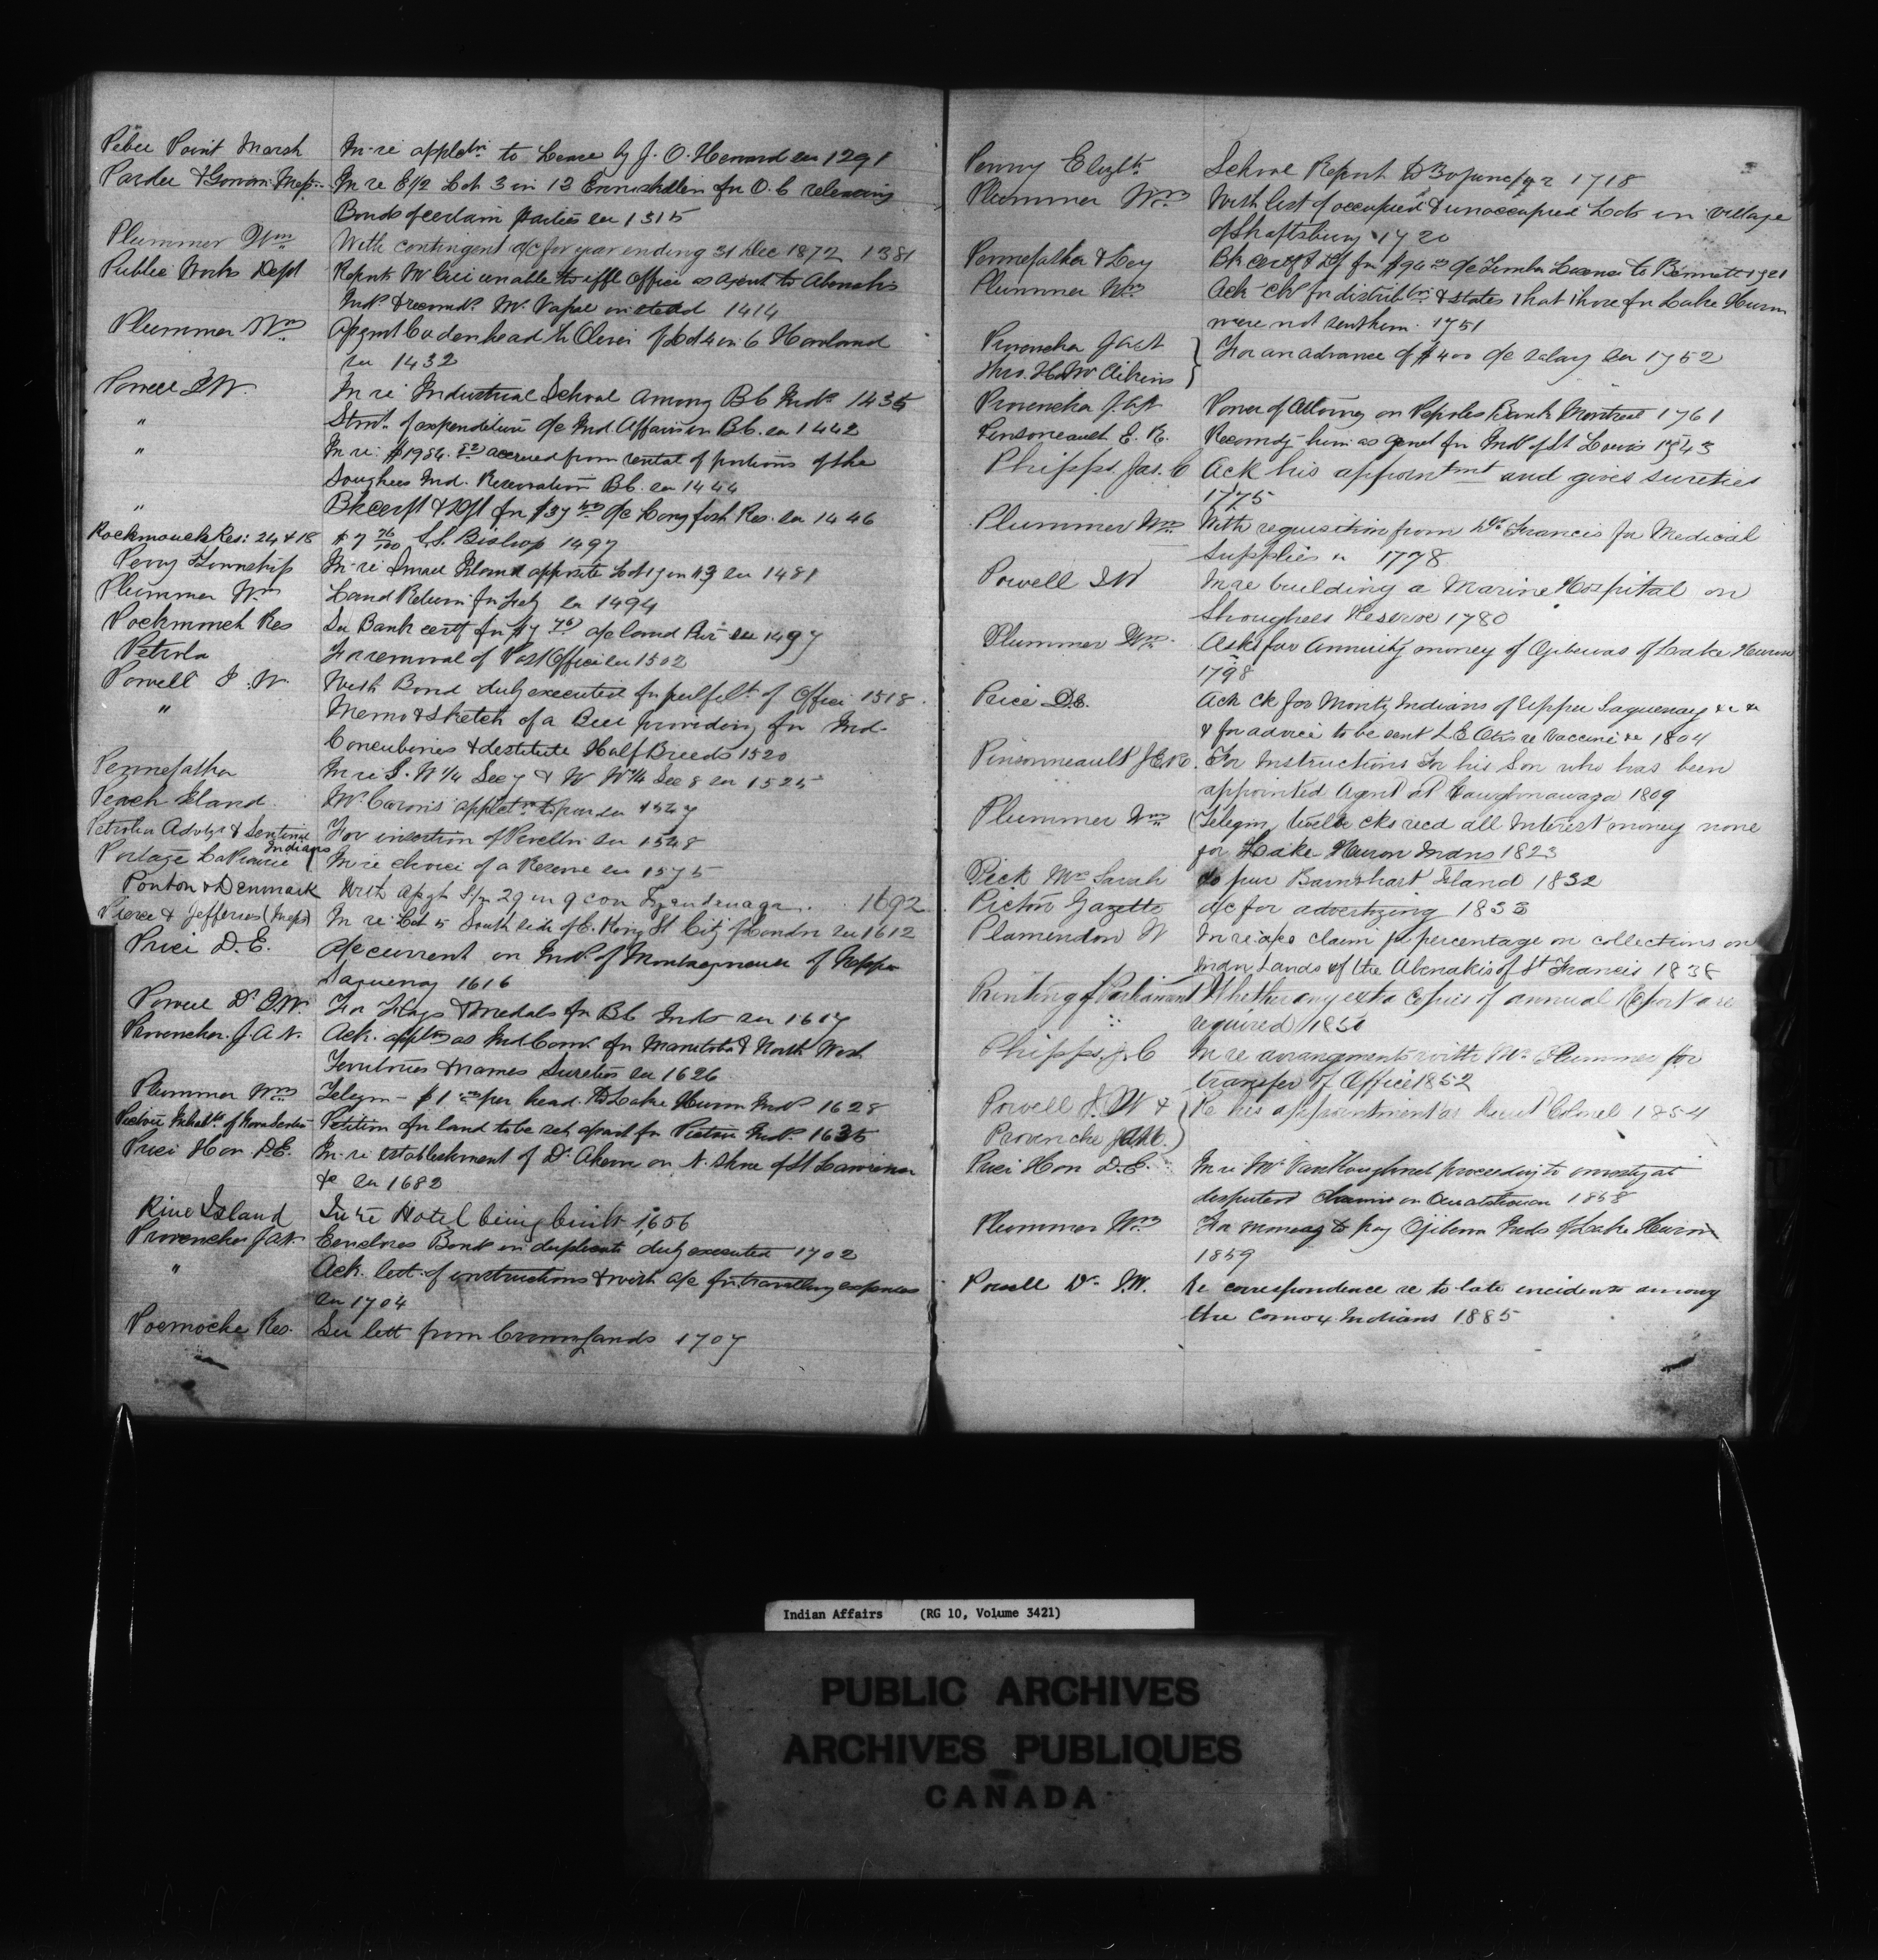 Pelee Point Marsh In re applctn to Lease by J. O. Heward see 1291
Pardee & Messrs In re E 1/2 Lot 3 in 13 Enniskillen for O. C. releasing
Bonds of certain parties see 1315
Plummer Wm With contingent a/c for year ending 31 Dec 1872 1381
Public Works Dept Reports Mr unable to office as agent to Abenakis
Inds & recomds Mr instead 1414
Plummer Wm Asgmt Cadenhead to Oliver of Lot 4 in 6 Howland
see 1432
Powell I W. In re Industrial School among B C Inds 1435
" Stmt of expenditure a/c Ind. Affairs in B C. see 1442
" In re $1984. accrued from rental of portions of the
Songhees Ind. Reservation B C. see 1444
" Bk certf & Dft for $37 a/c Cong Res. see 1446
Rockmouch Res: 24 & 18 $7 76/100 S. S. Bishop 1497
Perry Township In re Small Island opposite Lot 17 in 13 see 1481
Plummer Wm Land Return for July see 1494
Pockmouch Res See Bank certf for $7 76 a/c Land see 1497
Petrolia For removal of Post Office see 1502
Powell I. W. With Bond duly executed for fulfilt of Office 1518
" Memo & sketch of a Bill providing for Ind.
Concubines & destitute Half Breeds 1520
Pennefather In re S. W 1/4 Sec 7 & W W 1/4 Sec 8 see 1525
Peach Island Mr Caron's applctn to pur see 1527
Petrolia Advtzr & Sentinel For insertion of see 1548
Portage La Prairie Indians In re choice of a Reserve see 1575
Ponton & Denmark With asgt S/pt 29 in 9 con Tyendinaga . . . 1692
Pierce & Jefferies (Messrs) In re Lot 5 South side of E. King St City of London see 1612
Price D. E. A/c current on Inds of Montagneux of Upper
Saguenay 1616
Powell Dr I.W. For Flags & Medals for B C Inds see 1617
Provencher J. A. N. Ack. apptm as Ind Comr for Manitoba & North West
Territories & names Sureties see 1626
Plummer Wm Telegm - $1 per head. To Lake Huron Inds 1628
Pictou Inhabts of Nova Scotia Petition for land to be set apart for Pictou Inds. 1635
Price Hon D.E. In re establishment of Dr on N. Shore of St Lawrence
&c see 1682
Pine Island In re Hotel being built 1656
Provencher J A N Encloses Bond in duplicate duly executed 1702
" Ack. lett. of instructions & with a/c for travelling expenses
see 1704
Pocmoche Res. See lett from Crown Lands 1707
Penny Elizth School Report to 30 June/72 1718
Plummer Wm With list of occupied & unoccupied Lots in village
of Shaftsbury 1720
Pennefather & Ley Bk certf & Dft for $96 a/c Timber License to Bennett 1721
Plummer Wm Ack chs for distribtn & states that those for Lake Huron
were not sent him. 1751
Provencher J A N } For an advance of $400 a/c salary see 1752
Thro. H Aikins }
Provencher J. A N Power of Attorney on Peoples Bank Montreal 1761
Pinsoneault E. R. Recomdg him as agent for Inds of St Louis
Phipps. Jas. C Ack his appointmt and gives sureties
1775
Plummer Wm With requisition from Dr Francis for Medical
Supplies " 1778
Powell I W In re building a Marine Hospital on
Reserve 1780
Plummer Wm. Asks for Annuity money of Ojibewas of Lake Huron
1798
Price D.E. Ack ck for Monty Indians of Upper Saguenay &c &c
& for advice to be sent L E Otis re Vaccine &c 1804
Pinsonneault J.E.R. For Instructions for his Son who has been
appointed Agent at Caughnawaga 1809
Plummer Wm (Telegm) twelve cks recd all Interest money none
for Lake Huron Indns 1823
Pick Mrs Sarah to pur Barnhart Island 1832
Picton Gazette a/c for advertizing 1833
Plamendon W In re claim for percentage on collections on
Indn Lands of the Abenakis of St Francis 1838
Printing of Parliament Whether any extra copies of annual Report are
required 1850
Phipps. J. C In re arrangements with Mr Plummer for
transfer of Office 1852
Powell I. W & } Re his appointment as Lieut Colonel 1854
Provencher J A N. }
Price Hon D. E. In re Mr VanKoughnet proceeding to investigat
disputed claims on 1858
Plummer Wm For money to pay Ojibewa Inds of Lake Huron
1859
Powell Dr I.W. Re correspondence re to late incidents among
the Comox Indians 1885
Indian Affairs (RG 10, Volume 3421)
PUBLIC ARCHIVES
ARCHIVES PUBLIQUES
CANADA